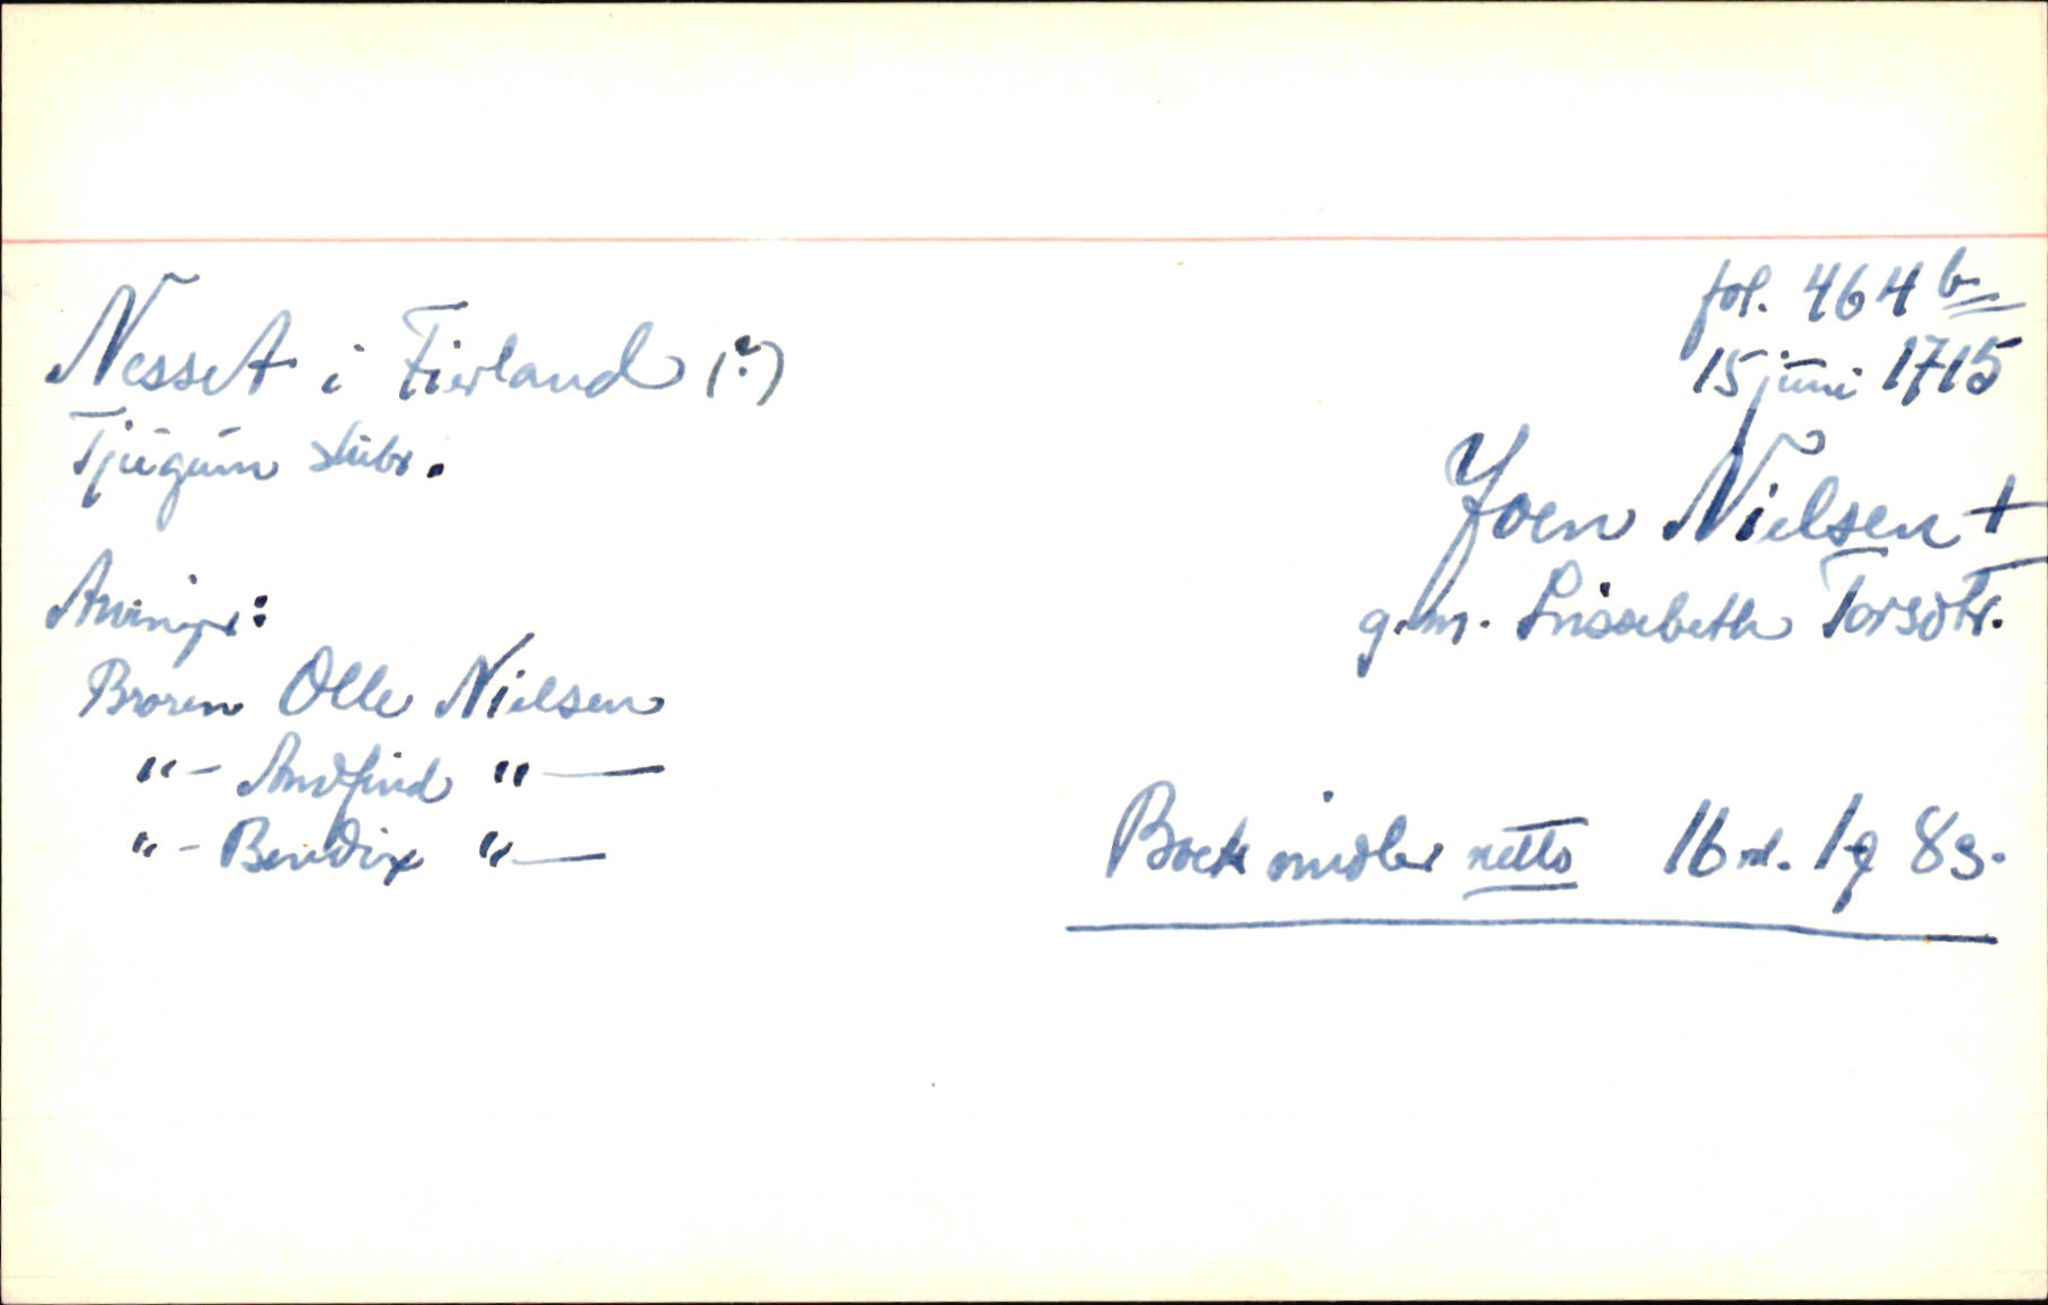 fol. 464 b
15 juni 1715
Nesset i Fierland (?)
Tjugum skibr.
Joen Nielsen +
g.m. Lissebeth Torsdtr.
Arvinger:
Broren Olle Nielsen
"- Andfind "—
"- Bendix "—
Boets midler netto 16 rd. 1 8 s.